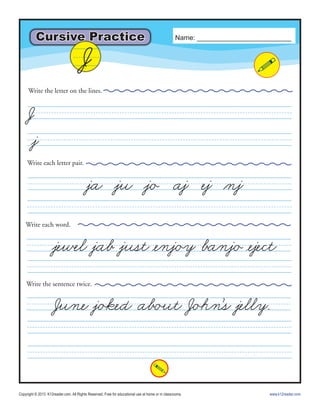 Cursive Practice
Name:
J
Write the letter on the lines.
J
j
Write each letter pair.
ja ju jo aj ej nj
Write each word.
jewel jab just enjoy banjo eject
Write the sentence twice.
June joked about John's jelly.
Copyright © 2015 K12reader.com. All Rights Reserved. Free for educational use at home or in classrooms. www.k12reader.com